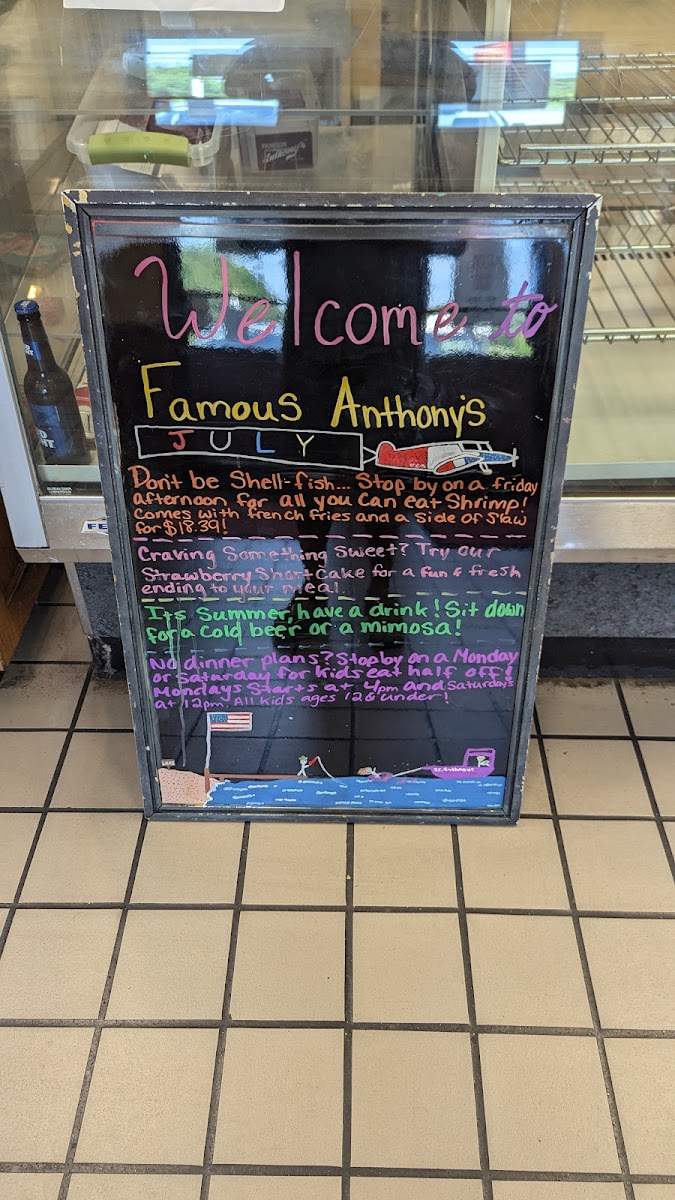 Anthony's
Welcome to
Famous Anthony's
JULY
USA
Don't be Shell-fish... Stop by on a friday
afternoon for all you can eat Shrimp!
Comes with french fries and a side of Slaw
for $18.39!
Craving Something Sweet? Try our
Strawberry Short Cake for a fun & fresh
ending to your meal
Its Summer, have a drink! Sit down
for a cold beer or a mimosa!
No dinner plans? Stop by on a Monday
or Saturday for kids eat half off!
Mondays Starts at 4pm and Saturdays
at 12pm. All kids ages 12 & under!